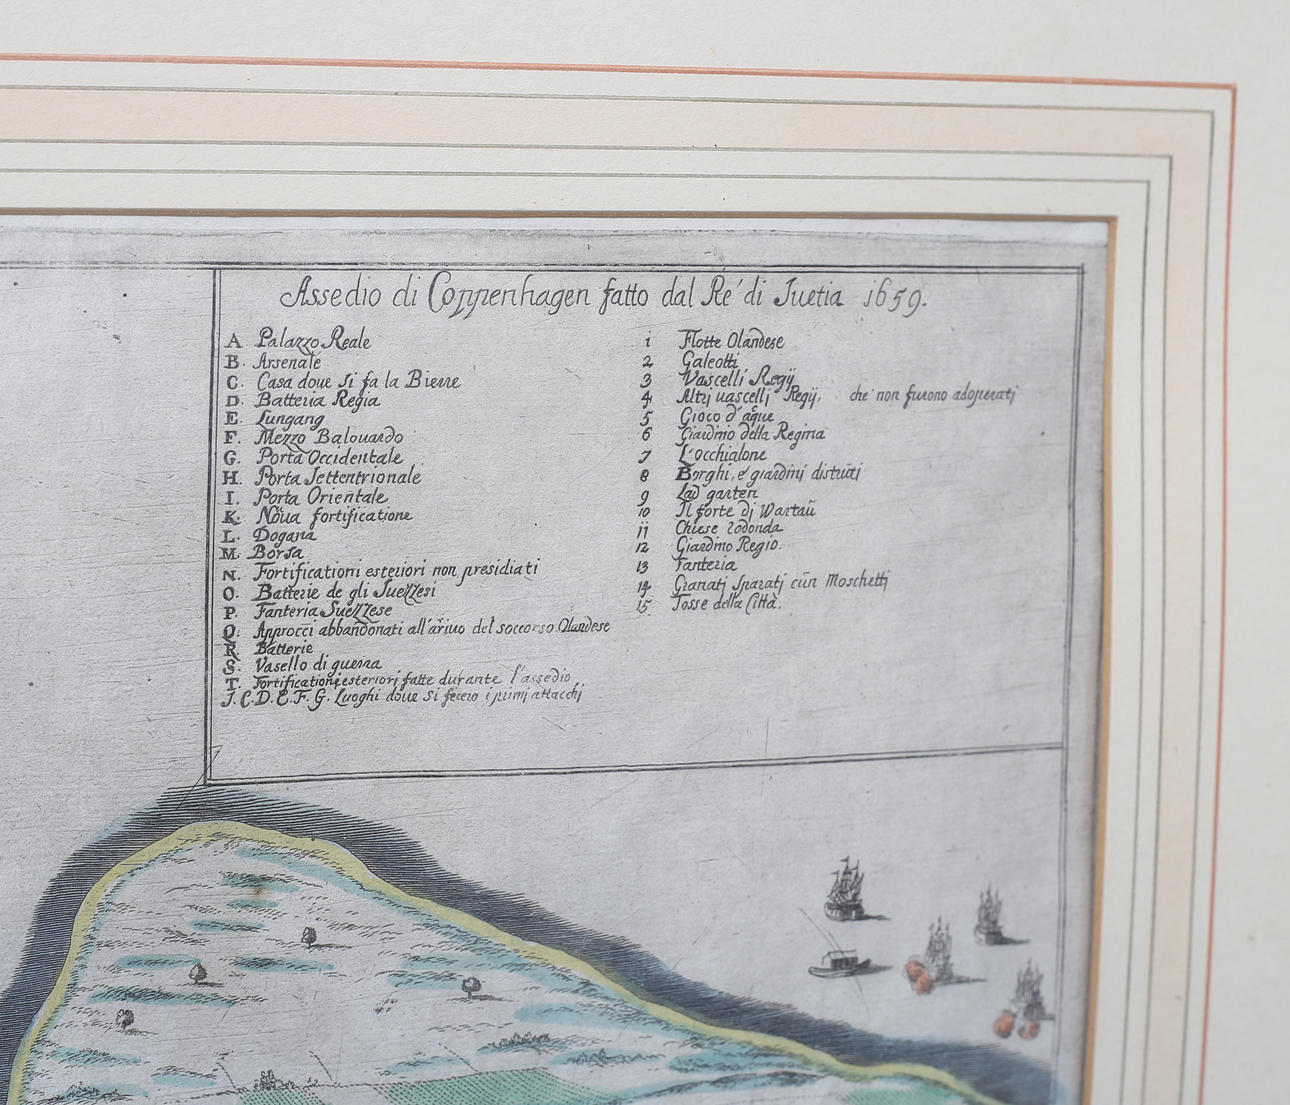 Assedio di Coppenhagen fatto dal Re' di Suetia 1659.
A Palazzo Reale
B. Arsenale
C. Casa doue si fa la Bierre
D. Batteria Regia
E. Lungang
F. Mezzo Balouardo
G. Porta Occidentale
H. Porta Settentrionale
I. Porta Orientale
K. Noua fortificatione
L. Dogana
M. Borsa
N. Fortificationi esteriori non presidiati
O. Batterie de gli Suezzesi
P. Fanteria Suezzese
Q. Approcci abbandonati all'ariuo del soccorso Olandese
R. Batterie
S. Vasello di guerra
T. Fortificationi esteriori fatte durante l'assedio
J. C. D. E. F. G. Luoghi doue si fecero i primj attacchj
1 Flotte Olandese
2 Galeotti
3 Vascelli Regÿ
4 Altrj uascellj Regÿ, che non furono adoperati
5 Gioco d'aque
6 Giardino della Regina
7 L'occhialone
8 Borghi, e' giardinj distruti
9 Lad garten
10 Il forte dj Wartaü
11 Chiese rodonda
12 Giardino Regio.
13 Fanteria
14 Granatj sparatj cün Moschettj
15 Fosse della Città.